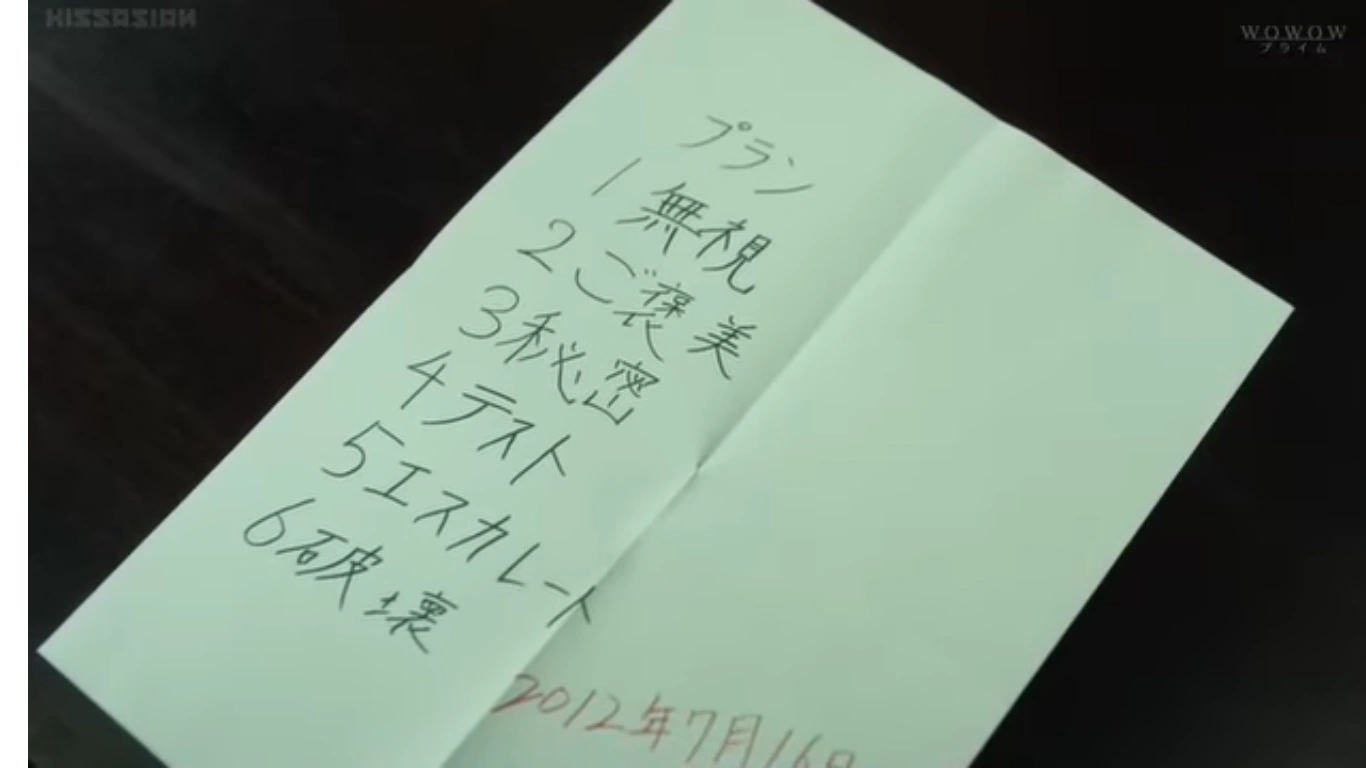 KISSASIAN
WOWOW
プライム
プラン
1 無視
2 ご褒美
3 秘密
4 テスト
5 エスカレート
6 破壊
2012年7月16日